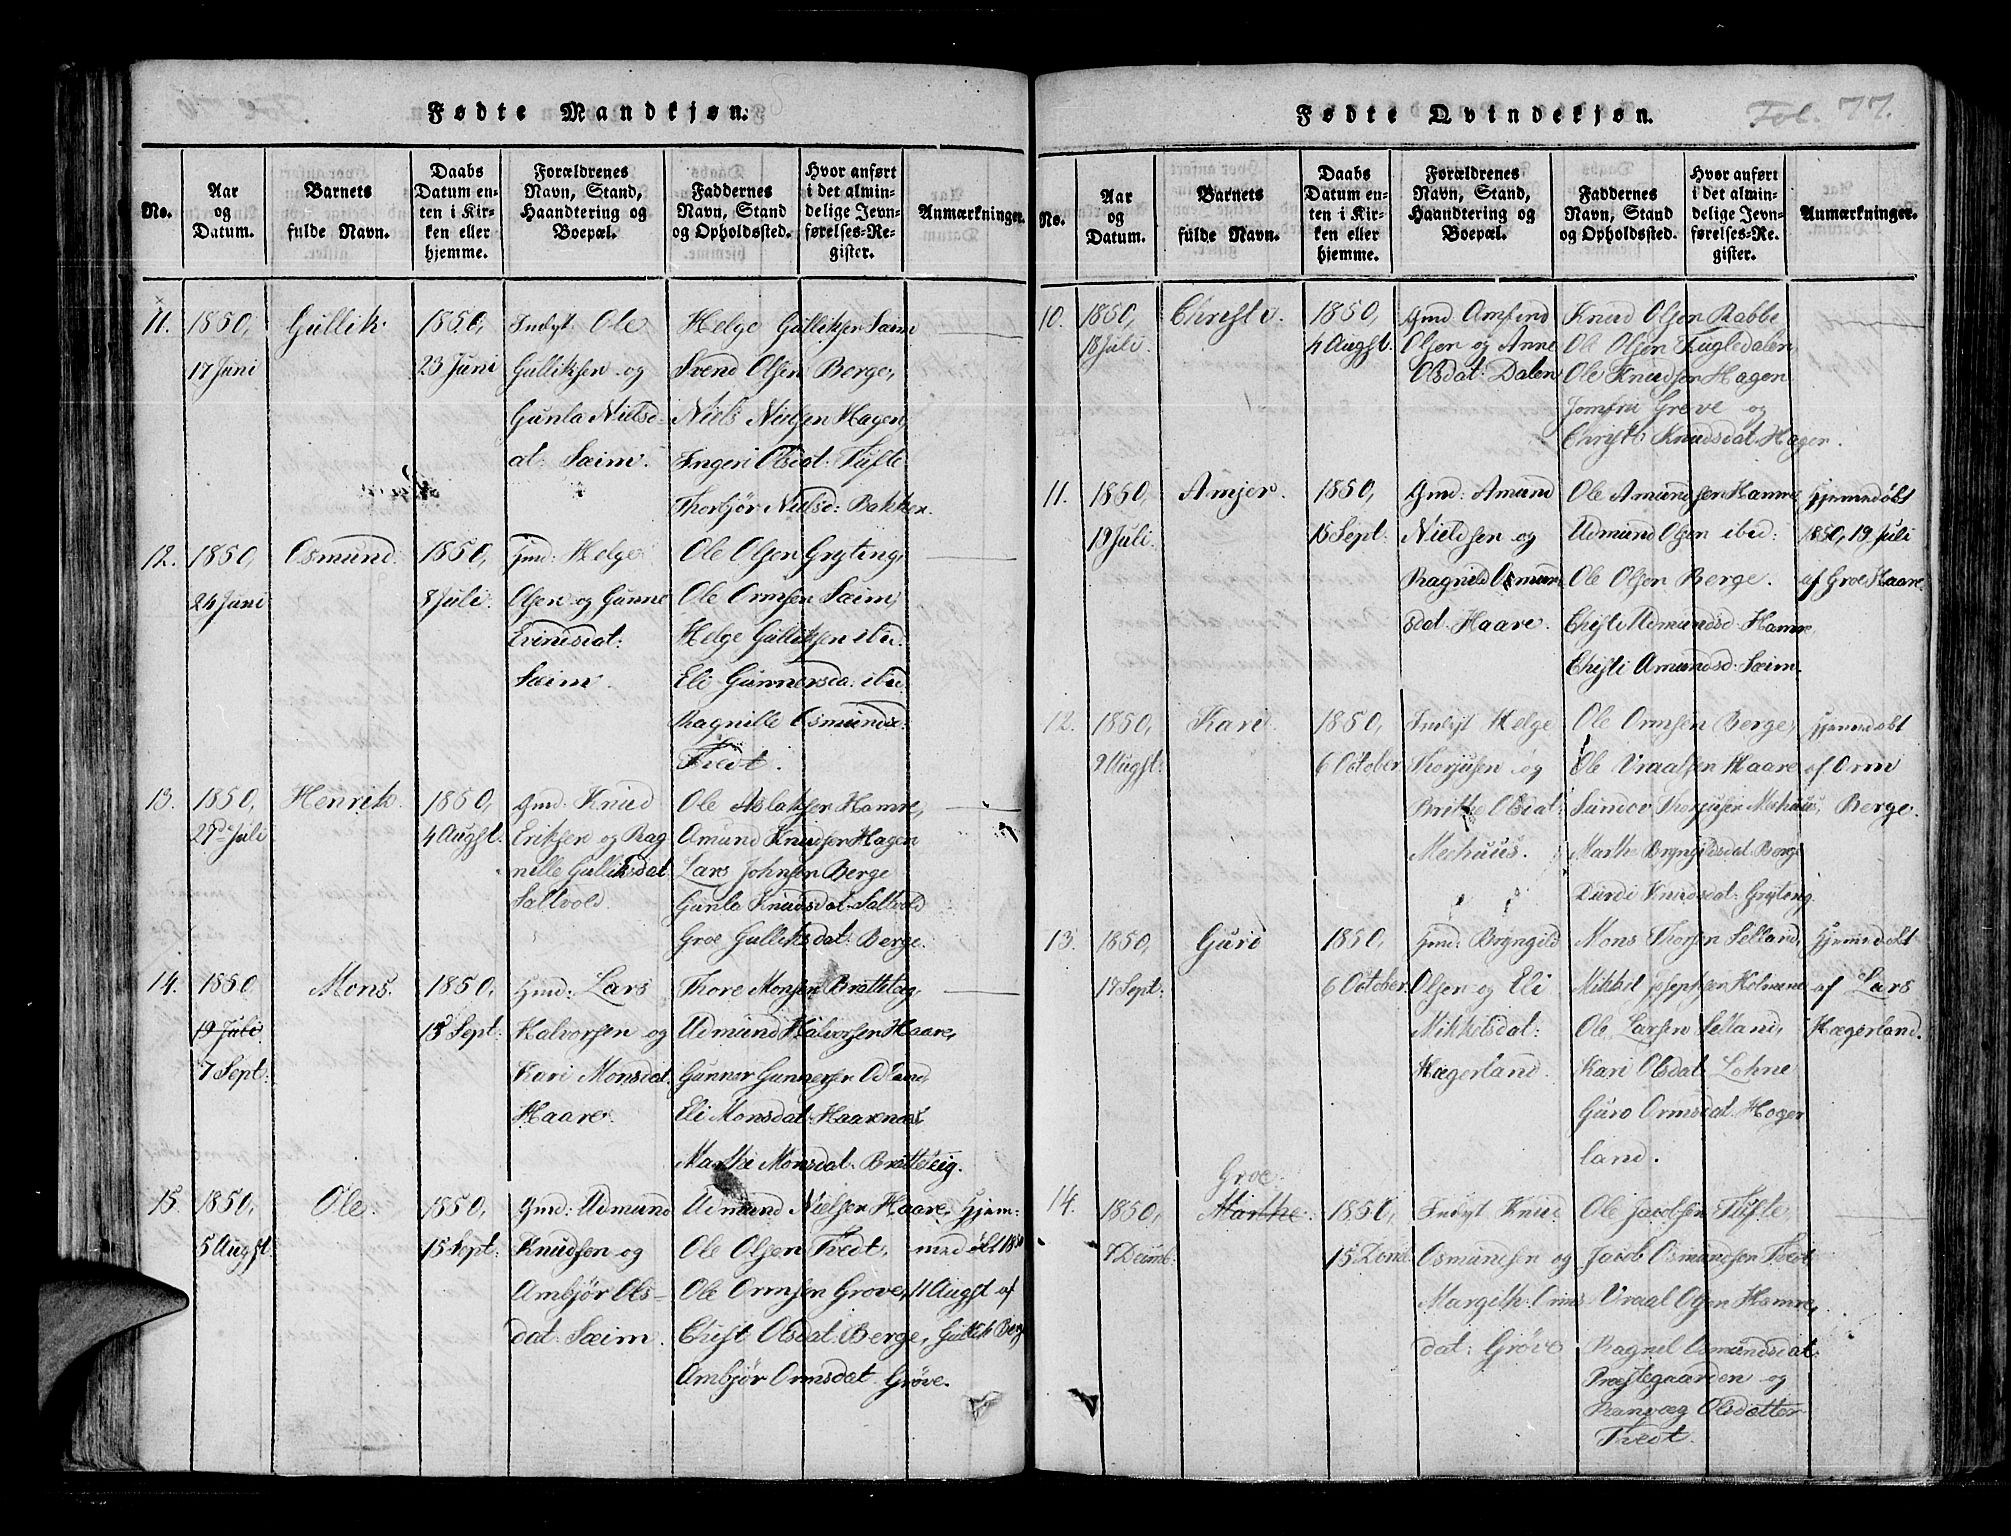 Fødte Mandkjøn.
No.
Aar og Datum.
Barnets fulde Navn.
Daabs Datum enten i Kirken eller hjemme.
Forældrenes Navn, Stand, Haandtering og Boepæl.
Faddernes Navn, Stand og Opholdssted.
Hvor anført i det almindelige Jevnførelses-Register.
Anmærkninger.
11.
1850,
17 Juni
Gullik
1850,
23 Juni
Indst Ole
Gulliksen og
Gunla Nielsd
at: Sæim.
Helge Gulliksen Sæim
Svend Olsen Berge,
Niels Nielsen Hagen,
Ingeri Olsdat: Tufte
Thorbjör Nielsd: Bakken.
12.
1850,
24 Juni
Osmund.
1850,
8 Juli.
Gmd: Helge
Olsen og Gunne
Evindsdat:
Sæim.
Ole Olsen Gryting,
Ole Ormsen Sæim,
Helge Gulliksen ibid.
Eli Gunnersda. ibid
Ragnille Osmundsd:
Tvedt.
13.
1850,
Juli
Henrik.
1850,
4 Augst.
Gmd: Knud
Eriksen og Rag
nille Gulliksdat
Saltvold
Ole Aslaksen Hamre,
Omund Knudsen Hagen
Lars Johnsen Berge
Gunla Knudsdat. Saltvold
Groe Gulliksdat: Berge.
14.
1850
19 Juli
7 Sept:
Mons.
1850,
15 Sept:
Gmd: Lars
Halvorsen og
Kari Monsdat.
Haare.
Thore Monsen Bratteleg
Udmund Halvorsen Haare,
Gunner Gunnersen Odland
Eli Monsdat: Haarenæs
Marthe Monsdat. Bratteleig.
15.
1850,
5 Augst.
Ole.
1850,
15 Sept:
Gmd: Udmund
Knudsen og
Ambjör Ols-
dat: Sæim.
Udmund Nielsen Haare,
Ole Olsen Tvedt,
Ole Ormsen Grove,
Christ. Olsdat Berge,
Ambjör Ormsdat Gröve.
Hjem-
11 Augst af
Gullik Berge
Fødte Qvindekjøn.
Fol. 77.
No.
Aar og Datum.
Barnets fulde Navn.
Daabs Datum enten i Kirken eller hjemme.
Forældrenes Navn, Stand, Haandtering og Boepæl.
Faddernes Navn, Stand og Opholdssted.
Hvor anført i det almindelige Jevnførelses-Register.
Anmærkninger.
10.
1850,
18 Juli.
Christi.
1850,
4 Augst.
Gmd Amfind
Olsen og Anne
Olsdat: Dalen
Knud Olsen Rabbe
Ole Olsen Fugledalen,
Ole Knudsen Hagen
Jomfru Greve og
Christi Knudsdat. Hagen.
11.
1850,
19 Juli.
Amjer.
1850,
15 Sept:
Gmd: Amund
Nielssen og
Ragnild Osmun
sdat. Haare.
Ole Amundsen Hamre,
Udmund Olsen ibid:
Ole Olsen Berge.
Christi Udmundsd: Hamre,
Christi Amundsd: Sæim.
Hjemmedöbt
1850, 19 Juli
af Groe Haare.
12.
1850,
9 Augst:
Kari.
1850,
6 October
Indst Helge
Thorjusen og
Brithe Olsdat:
Mehuus.
Ole Ormsen Berge,
Ole Vraalsen Haare
Sundov Thorjusen Mehuus,
Marthe Bryngildsdat. Berge
Durdi Knudsdat: Gryting.
Hjemmedöbt
af Orm
Berge.
13.
1850,
17 Sept:
Guro
1850,
6 October.
Gmd: Bryngild
Olsen og Eli
Mikkelsdat:
Hægerland.
Mons Thorsen Selland,
Mikkel Josephsen
Ole Larsen Selland,
Kari Olsdat: Lohne
Guro Ormsdat. Höger
land.
Hjemmedöbt
af Lars
Hægerland.
14.
1850,
7 Decemb:
Groe.
Marthe.
1850,
Indst Knud
Osmundsen og
Margith: Orms
dat: Gröve
Ole Jacobsen Tufte,
Jacob Osmundsen Tvedt
Vraal Olsen Hamre,
Ragnel Osmundsdat:
Præstegaarden og
Ranvæg Olsdatter
Tvedt.